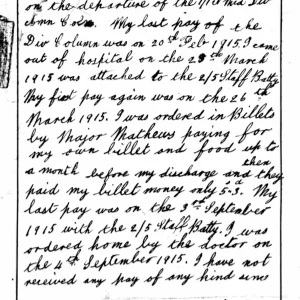 on the departure of the 1/1st Mid Div
Amn Coln. My last pay of the
Div Column was on 20th Feb 1915. I came
out of hospital on the 25th March
1915 was attached to the 2/5 Staff Batty.
My first pay again was on the 26th
March 1915. I was ordered in Billets
by Major Mathews paying for
my own billet and food up to
a month before my discharge and then they
paid my billet money only 5.3d. My
last pay was on the 3rd September
1915 with the 2/5 Staff Batty. I was
ordered home by the doctor on
the 4th September 1915. I have not
received any pay of any kind since